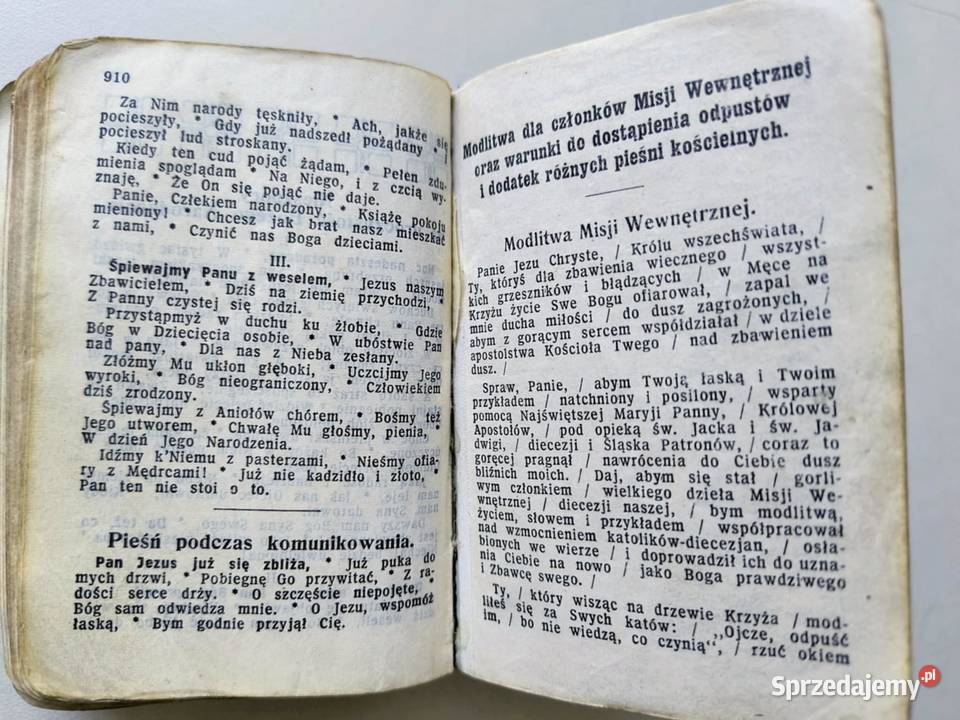 910
Za Nim narody tęskniły, * Ach, jakże się
pocieszyły, * Gdy już nadszedł pożądany *
pocieszył lud stroskany.
Kiedy ten cud pojąć żądam, * Pełen zdu-
mienia spoglądam * Na Niego, i z czcią wy-
znaję, * Że On się pojąć nie daje.
Panie, Człekiem narodzony, * Książę pokoju
mieniony! * Chcesz jak brat nasz mieszkać
z nami, * Czynić nas Boga dziećiami.
III.
Śpiewajmy Panu z weselem, * Jezus naszym
Zbawicielem, * Dziś na ziemię przychodzi, *
Z Panny czystej się rodzi.
Przystąpmyż w duchu ku żłobie, * Gdzie
Bóg w Dziecięcia osobie, * W ubóstwie Pan
nad pany, * Dla nas z Nieba zesłany.
Złóżmy Mu ukłon głęboki, * Uczcijmy Jego
wyroki, * Bóg nieograniczony, * Człowiekiem
dziś zrodzony.
Śpiewajmy z Aniołów chórem, * Bośmy też
Jego utworem, * Chwałę Mu głośmy, pienia, *
W dzień Jego Narodzenia.
Idźmy k'Niemu z pasterzami, * Nieśmy ofia-
ry z Mędrcami! * Już nie kadzidło i złoto, *
Pan ten nie stoi o to.
Pieśń podczas komunikowania.
Pan Jezus już się zbliża, * Już puka do
mych drzwi, * Pobiegnę Go przywitać, * Z ra-
dości serce drży. * O szczęście niepojęte, *
Bóg sam odwiedza mnie. * O Jezu, wspomóż
łaską, * Bym godnie przyjął Cię.
Modlitwa dla członków Misji Wewnętrznej
oraz warunki do dostąpienia odpustów
i dodatek różnych pieśni kościelnych.
Modlitwa Misji Wewnętrznej.
Panie Jezu Chryste, / Królu wszechświata, /
Ty, któryś dla zbawienia wiecznego / wszyst-
kich grzeszników i błądzących / w Męce na
Krzyżu życie Swe Bogu ofiarował, / zapal we
mnie ducha miłości / do dusz zagrożonych, /
abym z gorącym sercem współdziałał / w dziele
apostolstwa Kościoła Twego / nad zbawieniem
dusz. /
Spraw, Panie, / abym Twoją łaską i Twoim
przykładem / natchniony i posilony, / wsparty
pomocą Najświętszej Maryji Panny, / Królowej
Apostołów, / pod opieką św. Jacka i św. Ja-
dwigi, / diecezji i Śląska Patronów, / coraz to
goręcej pragnął / nawrócenia do Ciebie dusz
bliźnich moich. / Daj, abym się stał / gorli-
wym członkiem / wielkiego dzieła Misji We-
wnętrznej / diecezji naszej, / bym modlitwą,
życiem, słowem i przykładem / współpracował
nad wzmocnieniem katolików-diecezjan, / osła-
bionych we wierze / i doprowadził ich do uzna-
nia Ciebie na nowo / jako Boga prawdziwego
i Zbawcę swego. /
Ty, / który wisząc na drzewie Krzyża / mod-
liłeś się za Swych katów: / „Ojcze, odpuść
im, / bo nie wiedzą, co czynią“, / rzuć okiem
Sprzedajemy.pl